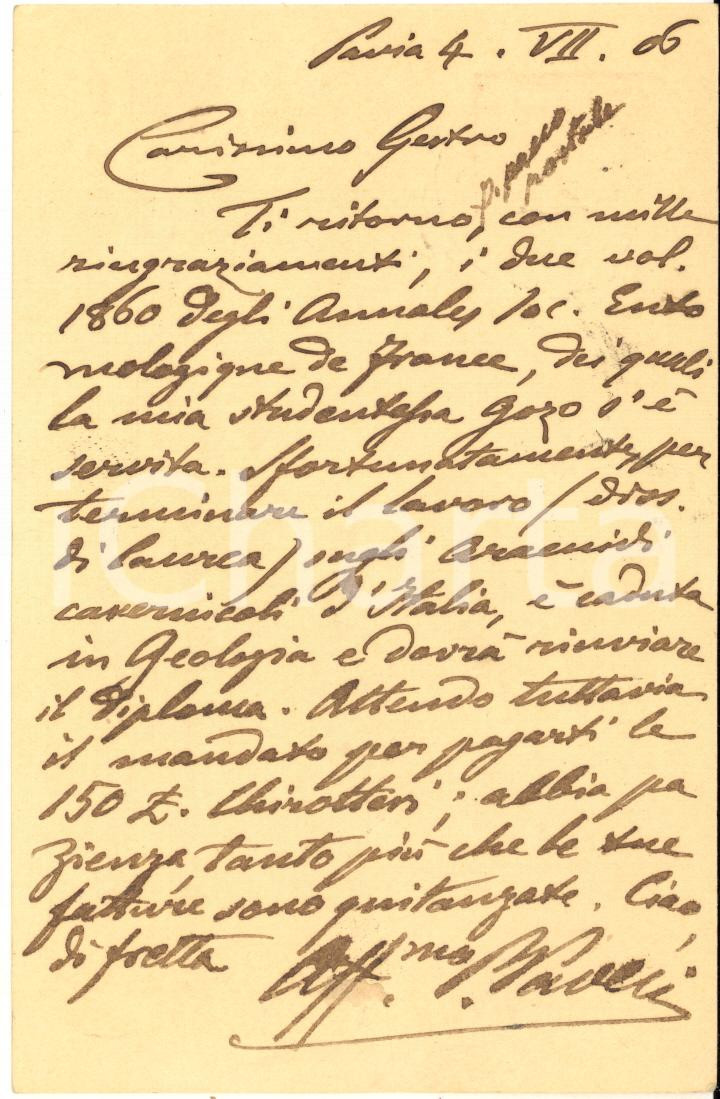 Pavia 4. VII. 06
Carissimo Gestro
pacco
postale
Ti ritorno, con mille
ringraziamenti, i due vol.
1860 degli Annales Soc. Ento
mologique de France, dei quali
la mia studentessa Gozo s'è
servita. Sfortunatamente, per
terminare il lavoro (diss.
di laurea) sugli Aracnidi
cavernicoli d'Italia, è caduta
in Geologia e dovrà rinviare
il diploma. Attendo tuttavia
il mandato per pagarti le
150 £. Chirotteri; abbia pa
zienza, tanto più che le tue
fatture sono quitanzate. Ciao,
di fretta
Aff.mo P. Pavesi
iCharta